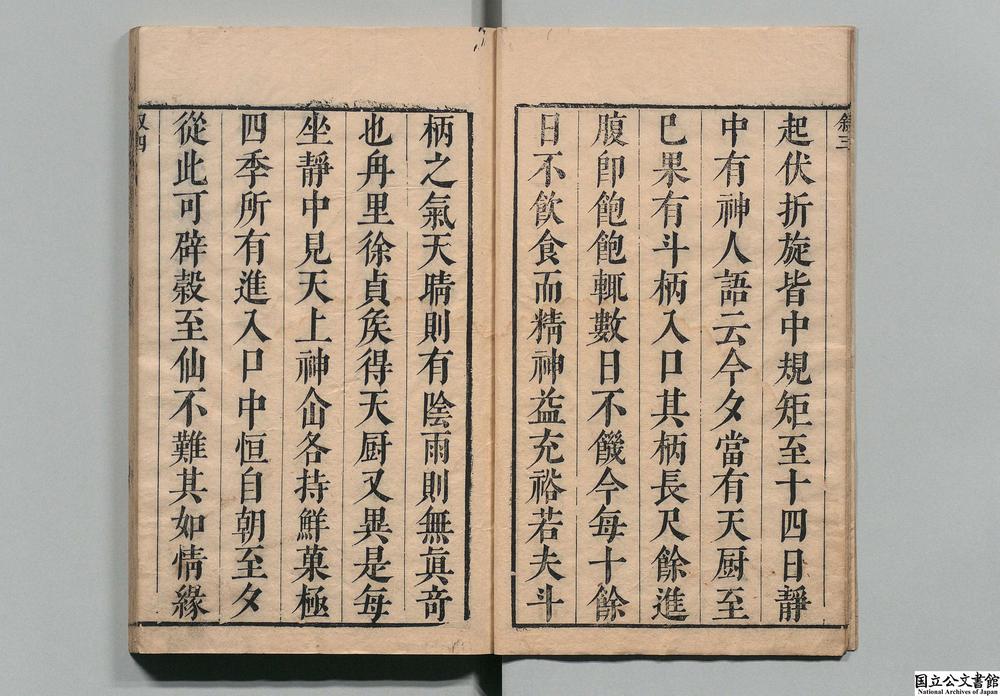 敘三
起伏折旋皆中規矩至十四日靜
中有神人語云今夕當有天厨至
巳果有斗柄入口其柄長尺餘進
腹卽飽飽輒數日不饑今每十餘
日不飲食而精神益充裕若夫斗
柄之氣天晴則有陰雨則無眞奇
也冉里徐貞矦得天厨又異是每
坐靜中見天上神仚各持鮮菓極
四季所有進入口中恒自朝至夕
從此可辟穀至仙不難其如情緣
叙四
国立公文書館
National Archives of Japan